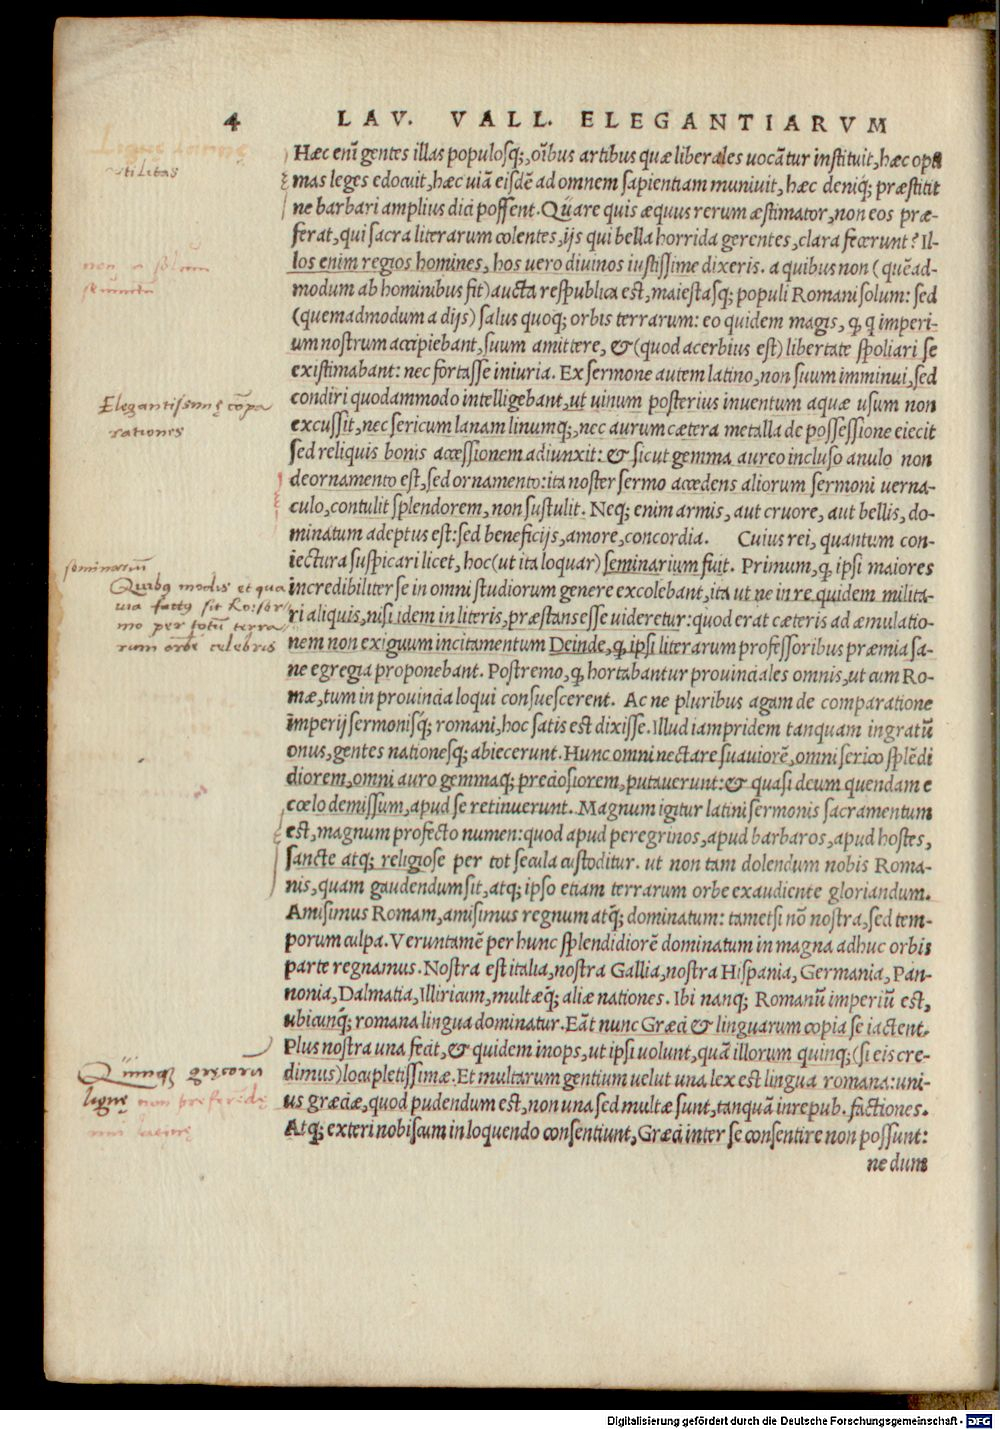 4 LAV. VALL. ELEGANTIARVM
Hæc enī gentes illas populosq;, oībus artibus quæ liberales uocātur instituit, hæc opti
mas leges edocuit, hæc uiā eisdē ad omnem sapientiam muniuit, hæc deniq; præstitit
ne barbari amplius dici possent. Quare quis æquus rerum æstimator, non eos præ-
ferat, qui sacra literarum colentes, ijs qui bella horrida gerentes, clara fecerunt? Il-
los enim regios homines, hos uero diuinos iustissime dixeris. a quibus non (quēad-
modum ab hominibus fit) aucta respublica est, maiestasq; populi Romani solum: sed
(quemadmodum a dijs) salus quoq; orbis terrarum: eo quidem magis, ꝙ, ꝙ imperi-
um nostrum accipiebant, suum amittere, & (quod acerbius est) libertate spoliari se
existimabant: nec fortasse iniuria. Ex sermone autem latino, non suum imminui, sed
condiri quodammodo intelligebant, ut uinum posterius inuentum aquæ usum non
excussit, nec sericum lanam linumq;, nec aurum cætera metalla de possessione eiecit
sed reliquis bonis accessionem adiunxit: & sicut gemma aureo incluso anulo non
deornamento est, sed ornamento: ita noster sermo accedens aliorum sermoni uerna-
culo, contulit splendorem, non sustulit. Neq; enim armis, aut cruore, aut bellis, do-
minatum adeptus est: sed beneficijs, amore, concordia. Cuius rei, quantum con-
iectura suspicari licet, hoc (ut ita loquar) seminarium fuit. Primum, ꝙ ipsi maiores
incredibiliter se in omni studiorum genere excolebant, ita ut ne in re quidem milita-
ri aliquis, nisi idem in literis, præstans esse uideretur: quod erat cæteris ad æmulatio-
nem non exiguum incitamentum Deinde, ꝙ ipsi literarum professoribus præmia sa-
ne egregia proponebant. Postremo, ꝙ hortabantur prouinciales omnis, ut cum Ro-
mæ, tum in prouincia loqui consuescerent. Ac ne pluribus agam de comparatione
imperij sermonisq; romani, hoc satis est dixisse. Illud iampridem tanquam ingratū
onus, gentes nationesq; abiecerunt. Hunc omni nectare suauiorē, omni serico splēdi
diorem, omni auro gemmaq; preciosiorem, putauerunt: & quasi deum quendam e
cœlo demissum, apud se retinuerunt. Magnum igitur latini sermonis sacramentum
est, magnum profecto numen: quod apud peregrinos, apud barbaros, apud hostes,
sancte atq; religiose per tot secula custoditur. ut non tam dolendum nobis Roma-
nis, quam gaudendum sit, atq; ipso etiam terrarum orbe exaudiente gloriandum.
Amisimus Romam, amisimus regnum atq; dominatum: tametsi nō nostra, sed tem-
porum culpa. Veruntamē per hunc splendidiorē dominatum in magna adhuc orbis
parte regnamus. Nostra est italia, nostra Gallia, nostra Hispania, Germania, Pan-
nonia, Dalmatia, Illiricum, multæq; aliæ nationes. Ibi nanq; Romanū imperiū est,
ubicunq; romana lingua dominatur. Eāt nunc Græci & linguarum copia se iactent.
Plus nostra una fecit, & quidem inops, ut ipsi uolunt, quā illorum quinq; (si eis cre-
dimus) locupletissimæ. Et multarum gentium uelut una lex est lingua romana: uni-
us græciæ, quod pudendum est, non una sed multæ sunt, tanquā in repub. factiones.
Atq; exteri nobiscum in loquendo consentiunt, Græci inter se consentire non possunt:
ne dum
utilitas
Elegantissimę cōpa
rationes
seminariū
Quibꝰ modis et qua
uia factꝰ sit Ro: ser
mo per totū terra
rum orbē celebris
Quinqꝫ gręcorū
lignę non preferēdę
Digitalisierung gefördert durch die Deutsche Forschungsgemeinschaft - DFG